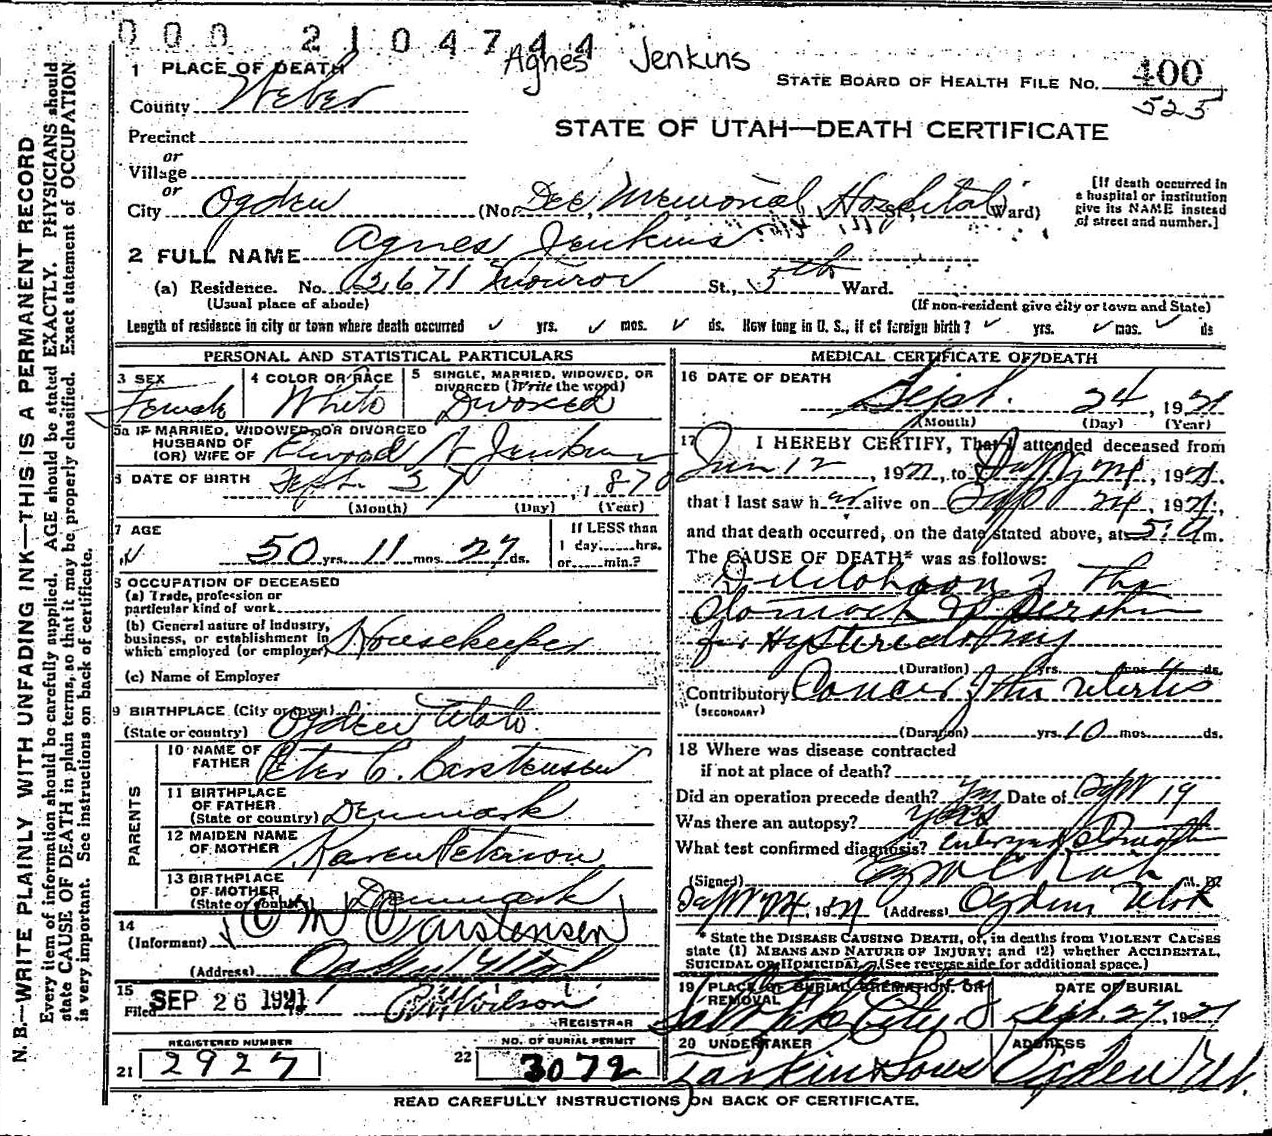 000 2104744
Agnes Jenkins
1 PLACE OF DEATH
STATE BOARD OF HEALTH FILE NO. 400
525
County Weber
STATE OF UTAH—DEATH CERTIFICATE
Precinct
or
Village
or
City Ogden (No. Dee Memorial Hospital St., Ward)
[If death occurred in
a hospital or institution
give its NAME instead
of street and number.]
2 FULL NAME Agnes Jenkins
(a) Residence. No. 2671 Monroe St., 5th Ward.
(Usual place of abode) (If non-resident give city or town and State)
Length of residence in city or town where death occurred yrs. mos. ds. How long in U. S., if of foreign birth? yrs. mos. ds
PERSONAL AND STATISTICAL PARTICULARS
3 SEX
Female
4 COLOR OR RACE
White
5 SINGLE, MARRIED, WIDOWED, OR
DIVORCED (Write the word)
Divorced
5a IF MARRIED, WIDOWED, OR DIVORCED
HUSBAND OF
(OR) WIFE OF Elwood H Jenkins
6 DATE OF BIRTH Sept. 27, 1870
(Month) (Day) (Year)
7 AGE
50 yrs. 11 mos. 27 ds.
If LESS than
1 day......hrs.
or......min.?
8 OCCUPATION OF DECEASED
(a) Trade, profession or
particular kind of work
(b) General nature of industry,
business, or establishment in
which employed (or employer) Housekeeper
(c) Name of Employer
9 BIRTHPLACE (City or town)
(State or country) Ogden Utah
PARENTS
10 NAME OF
FATHER Peter C. Carstensen
11 BIRTHPLACE
OF FATHER
(State or country) Denmark
12 MAIDEN NAME
OF MOTHER Karen Peterson
13 BIRTHPLACE
OF MOTHER
(State or country) Denmark
14
(Informant) C M Carstensen
(Address) Ogden Utah
15
Filed SEP 26 1921 Wilson
REGISTRAR
REGISTERED NUMBER
21 2927
NO. OF BURIAL PERMIT
22 3072
MEDICAL CERTIFICATE OF DEATH
16 DATE OF DEATH
Sept. 24, 1921
(Month) (Day) (Year)
17 I HEREBY CERTIFY, That I attended deceased from
Jun 12, 1921, to Sept 24, 1921.
that I last saw her alive on Sept 24, 1921,
and that death occurred, on the date stated above, at 5: a m.
The CAUSE OF DEATH* was as follows:
Dilatation of the
Stomach
for Hysterectomy
(Duration) yrs. mos. ds.
Contributory Cancer of the Uterus
(SECONDARY)
(Duration) yrs. 10 mos. ds.
18 Where was disease contracted
if not at place of death?
Did an operation precede death? Yes Date of Sept 19
Was there an autopsy? yes
What test confirmed diagnosis?
(Signed) M. D.
Sept 24, 1921 (Address) Ogden Utah
* State the DISEASE CAUSING DEATH, or, in deaths from VIOLENT CAUSES
state (1) MEANS AND NATURE OF INJURY; and (2) whether ACCIDENTAL,
SUICIDAL or HOMICIDAL. (See reverse side for additional space.)
19 PLACE OF BURIAL, CREMATION, OR
REMOVAL
Salt Lake City
DATE OF BURIAL
Sept. 27, 1921
20 UNDERTAKER
Larkin & Sons
ADDRESS
Ogden Ut.
READ CAREFULLY INSTRUCTIONS ON BACK OF CERTIFICATE.
N. B.—WRITE PLAINLY WITH UNFADING INK—THIS IS A PERMANENT RECORD
Every item of information should be carefully supplied. AGE should be stated EXACTLY. PHYSICIANS should
state CAUSE OF DEATH in plain terms, so that it may be properly classified. Exact statement of OCCUPATION
is very important. See instructions on back of certificate.